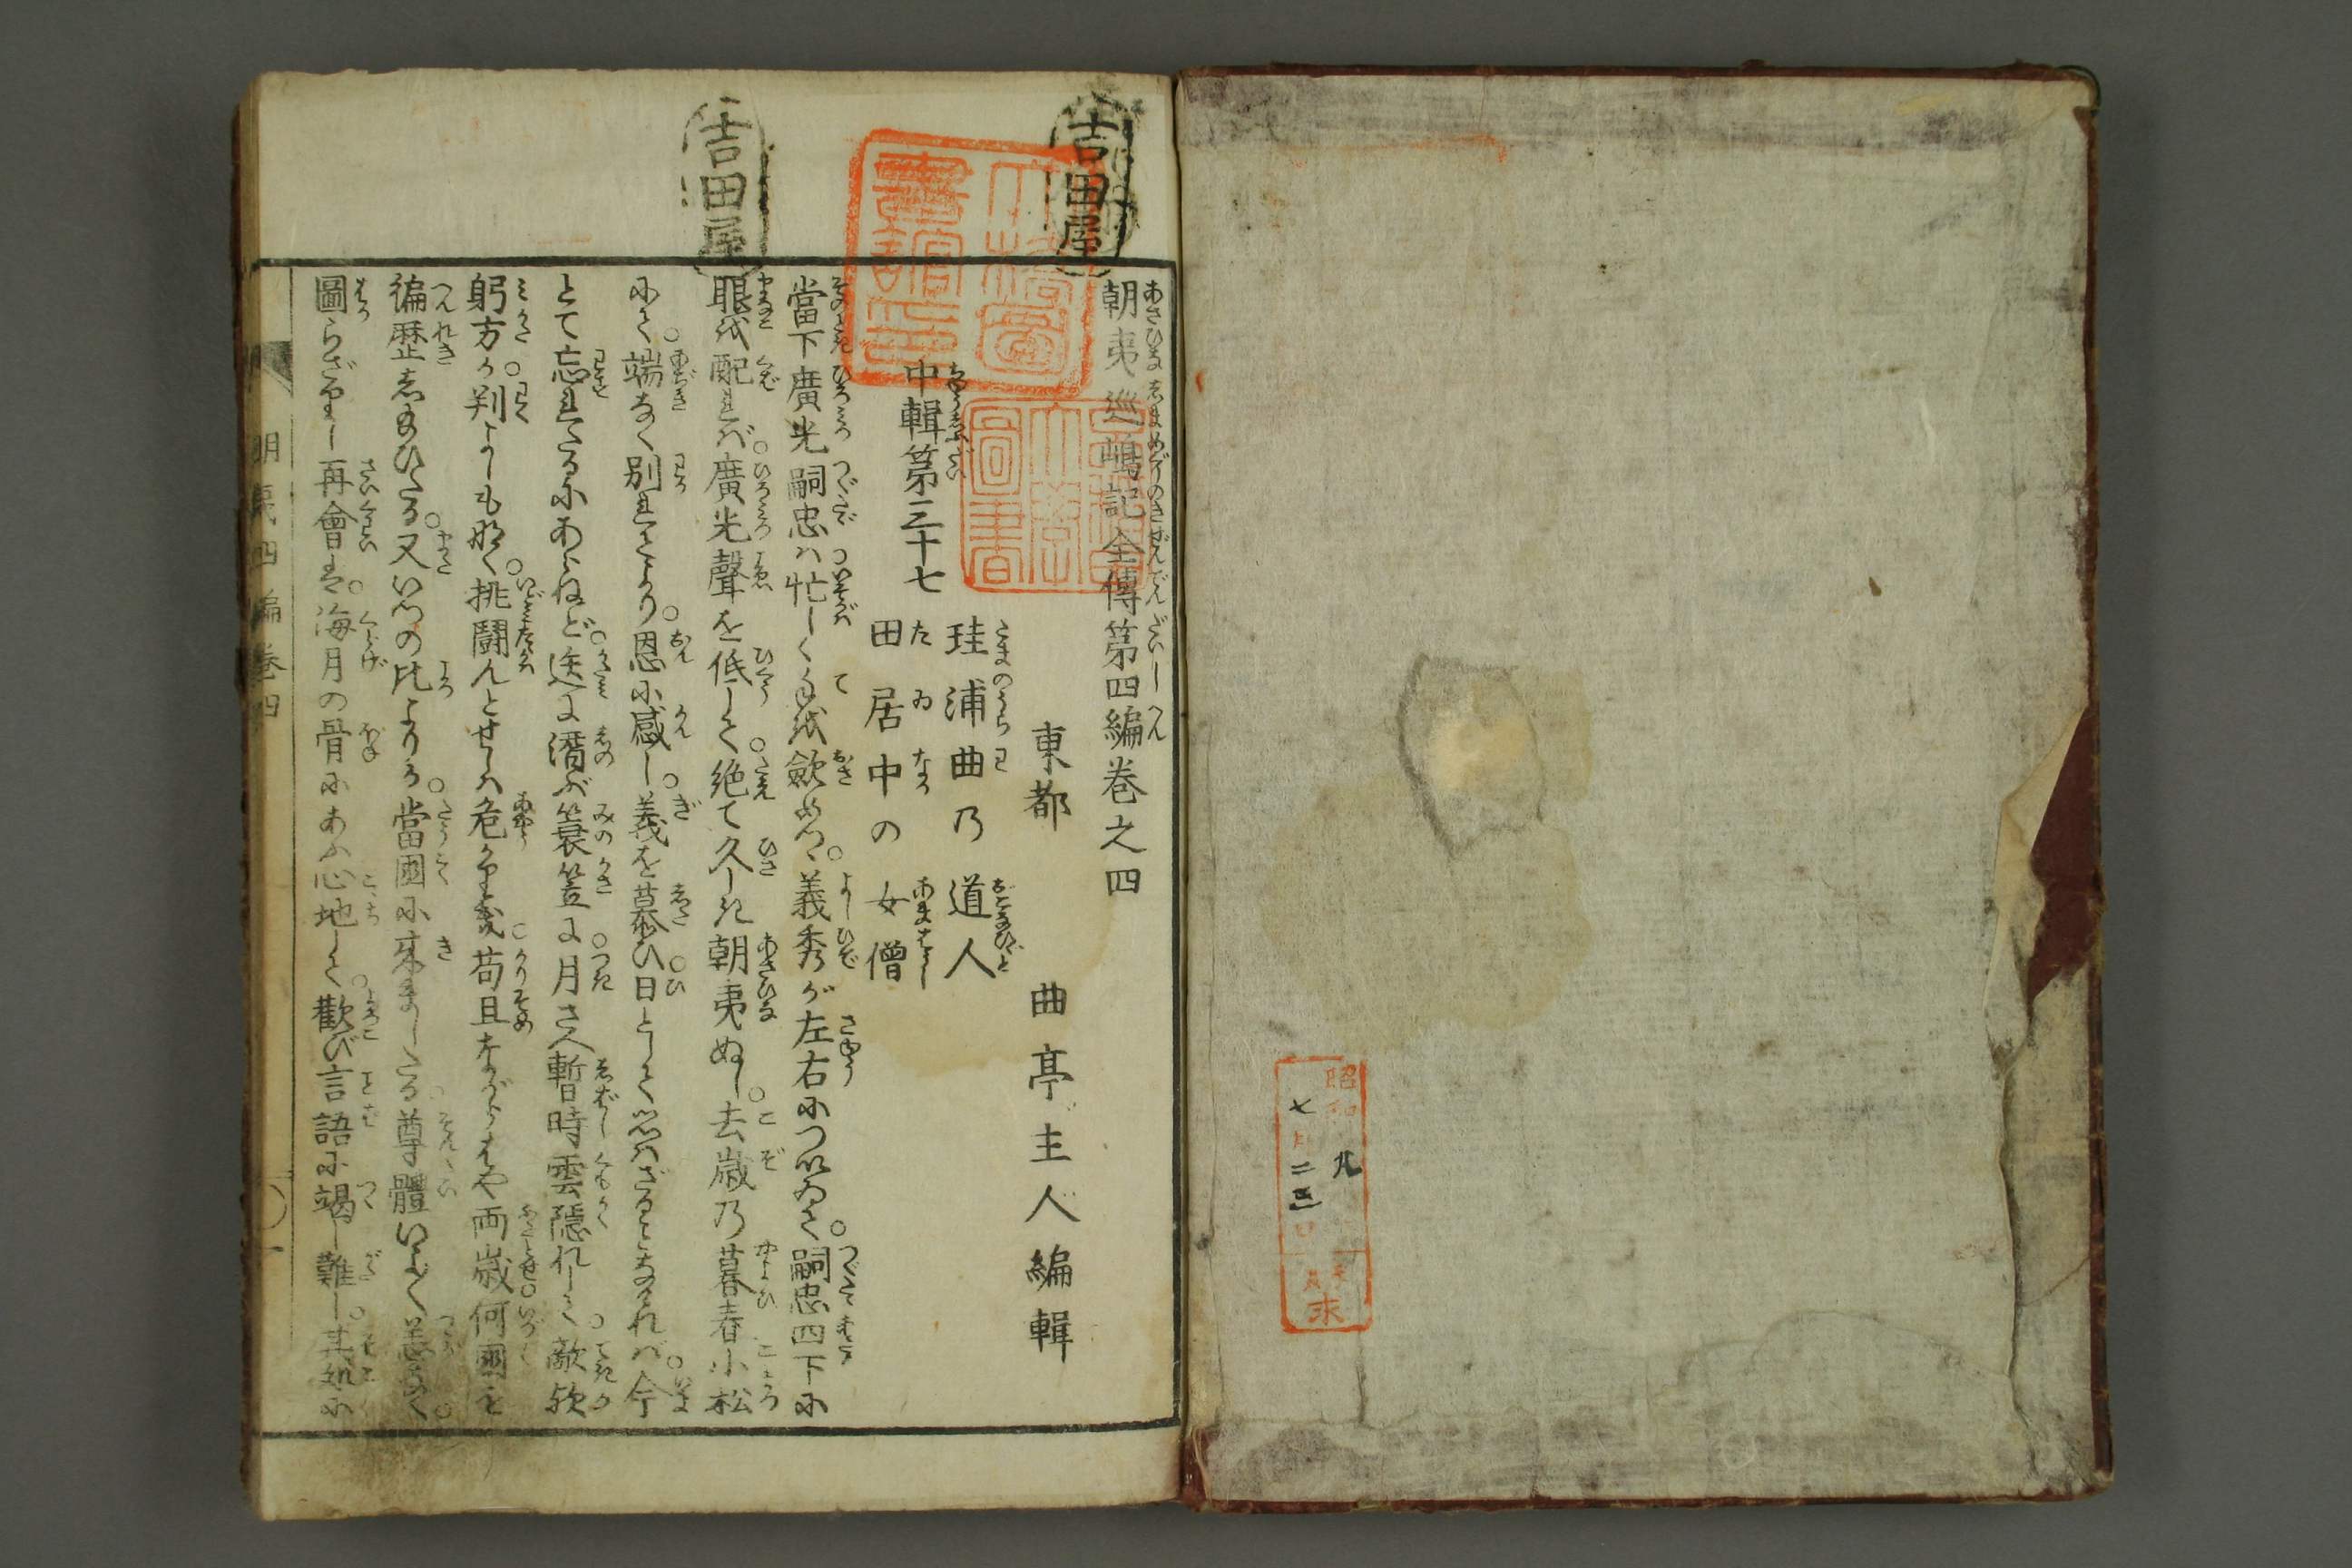 朝夷巡嶋記全傳第四編巻之四
東都　曲亭主人編輯
中輯第三十七
珪浦曲乃道人
田居中の女僧
當下廣光嗣忠ハ忙しく手を斂めつ。義秀が左右につひゐて。嗣忠四下に
眼を配れば。廣光聲を低して。絶て久しき朝夷ぬし。去歳乃暮春小松
にて。端なく別れしより。恩に感し。義を慕ひ。日としておもはざることなけれバ。今
とて忘れたるにあらねど。迭に潛ぶ簑笠に。月さへ暫時雲隱れして。敵欤
躬方か。判よしも なく。挑鬪んとせしハ危かりき。苟且ながらはや両歳。何國を
徧歴し給ひたる。又いつの比よりか。當國に來ましたる。尊體いよゝ恙なく。
圖らざりし再會は。海月の骨にあふ心地して。歡び言語に竭し難し。其処に
朝夷四編巻四
吉田屋
吉田屋
昭和 九
七月二三日
求